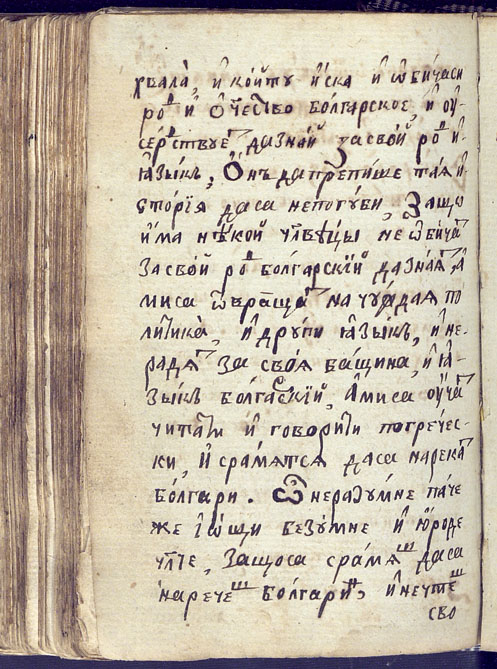 хвала̀, и҆ ко́йту и҆́ска и҆ ѡ҆би́часи
роⷣ и҆ ѻ҆чⷭ҇тво бо́лгарское, и҆ оу҆
се́рⷣствуеⷮ да зна́й за сво́й роⷣ и҆
ꙗ҆зы́кь, Ѻ҆́нъ да препи́ше та́ѧ и҆
сто́рїѧ да са не погу́би, Защо
и҆́ма нѣ́кой чл҃вѣ́цы не ѡ҆би́чаⷮ
за сво́й роⷣ бо́лгарскїй да зна́ѧⷮ, а҆
ми са ѡ҆бра́щаⷮ на чу́ждаѧ по
ли́тика̀, и҆ дру́ги ꙗ҆зы́кь, и҆ не
радѧⷮ за своѧ̀ ба́щина, и҆ ꙗ҆
зы́кь бо́лгаⷭскїй, а҆ ми са оу҆́чаⷮ
чита́ти и҆ говори́ти по гре́чес
ки, и҆ сра́мѧтсѧ да са нарекаⷮ
бо́лгари. Ѽ неразу́мне па́че
же і҆ѡщи безу́мне и҆ ю҆ро́де
чл҃че, Защо са сра́мѧⷲ да са
нарече́ⷲ бо́лгаринⷩ, и҆ не чте́ⷲ
сво